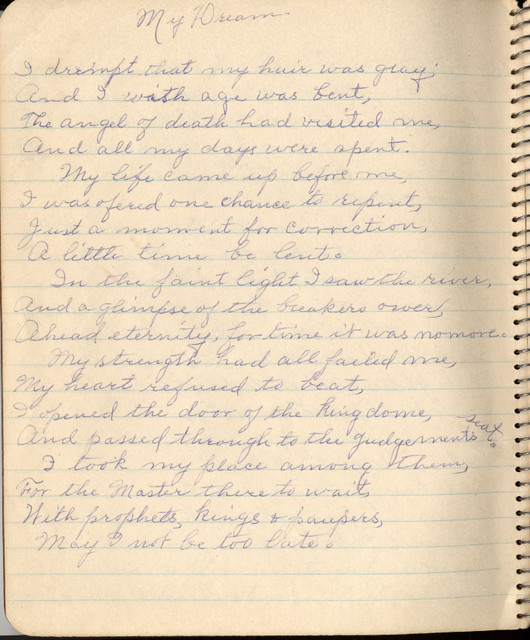 My Dream
I drempt that my hair was gray;
And I with age was bent,
The angel of death had visited me,
And all my days were spent.
My life came up before me,
I was ofered one chance to repent,
Just a moment for correction,
A little time be lent.
In the faint light I saw the river,
And a glimpse of the breakers owver,
Ahead eternity, for time it was nomore.
My strength had all failed me,
My heart refused to beat,
I opened the door of the kingdome,
And passed through to the judgements seat.
I took my place among them,
For the Master there to wait,
With prophets, kings & paupers,
May I not be too late.